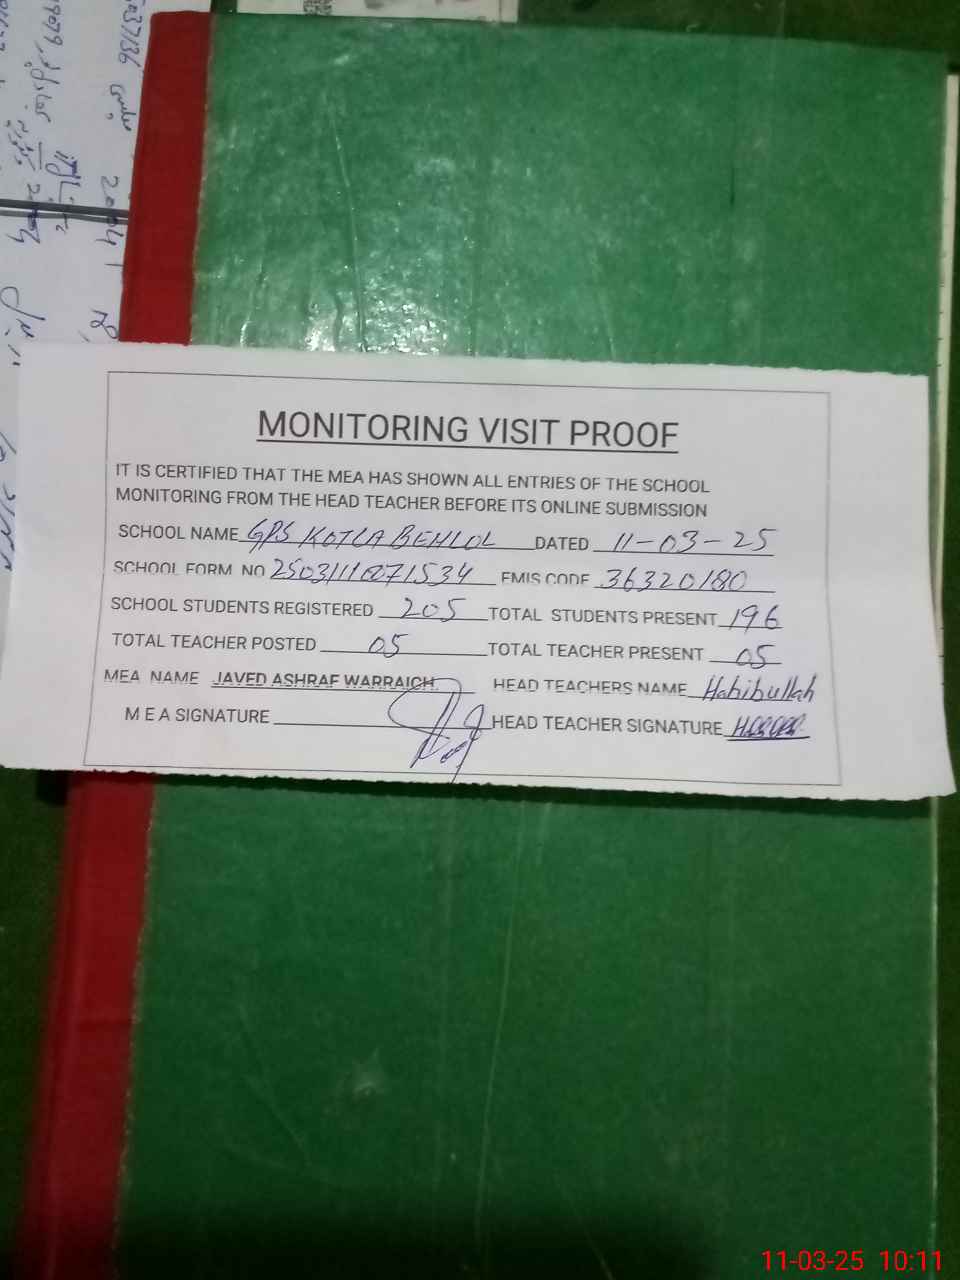 MONITORING VISIT PROOF
IT IS CERTIFIED THAT THE MEA HAS SHOWN ALL ENTRIES OF THE SCHOOL
MONITORING FROM THE HEAD TEACHER BEFORE ITS ONLINE SUBMISSION
SCHOOL NAME GPS KOTLA BEHLOL DATED 11-03-25
SCHOOL FORM NO 25031110071534 EMIS CODE 36320180
SCHOOL STUDENTS REGISTERED 205 TOTAL STUDENTS PRESENT 196
TOTAL TEACHER POSTED 05 TOTAL TEACHER PRESENT 05
MEA NAME JAVED ASHRAF WARRAICH. HEAD TEACHERS NAME Habibullah
M E A SIGNATURE HEAD TEACHER SIGNATURE
11-03-25 10:11